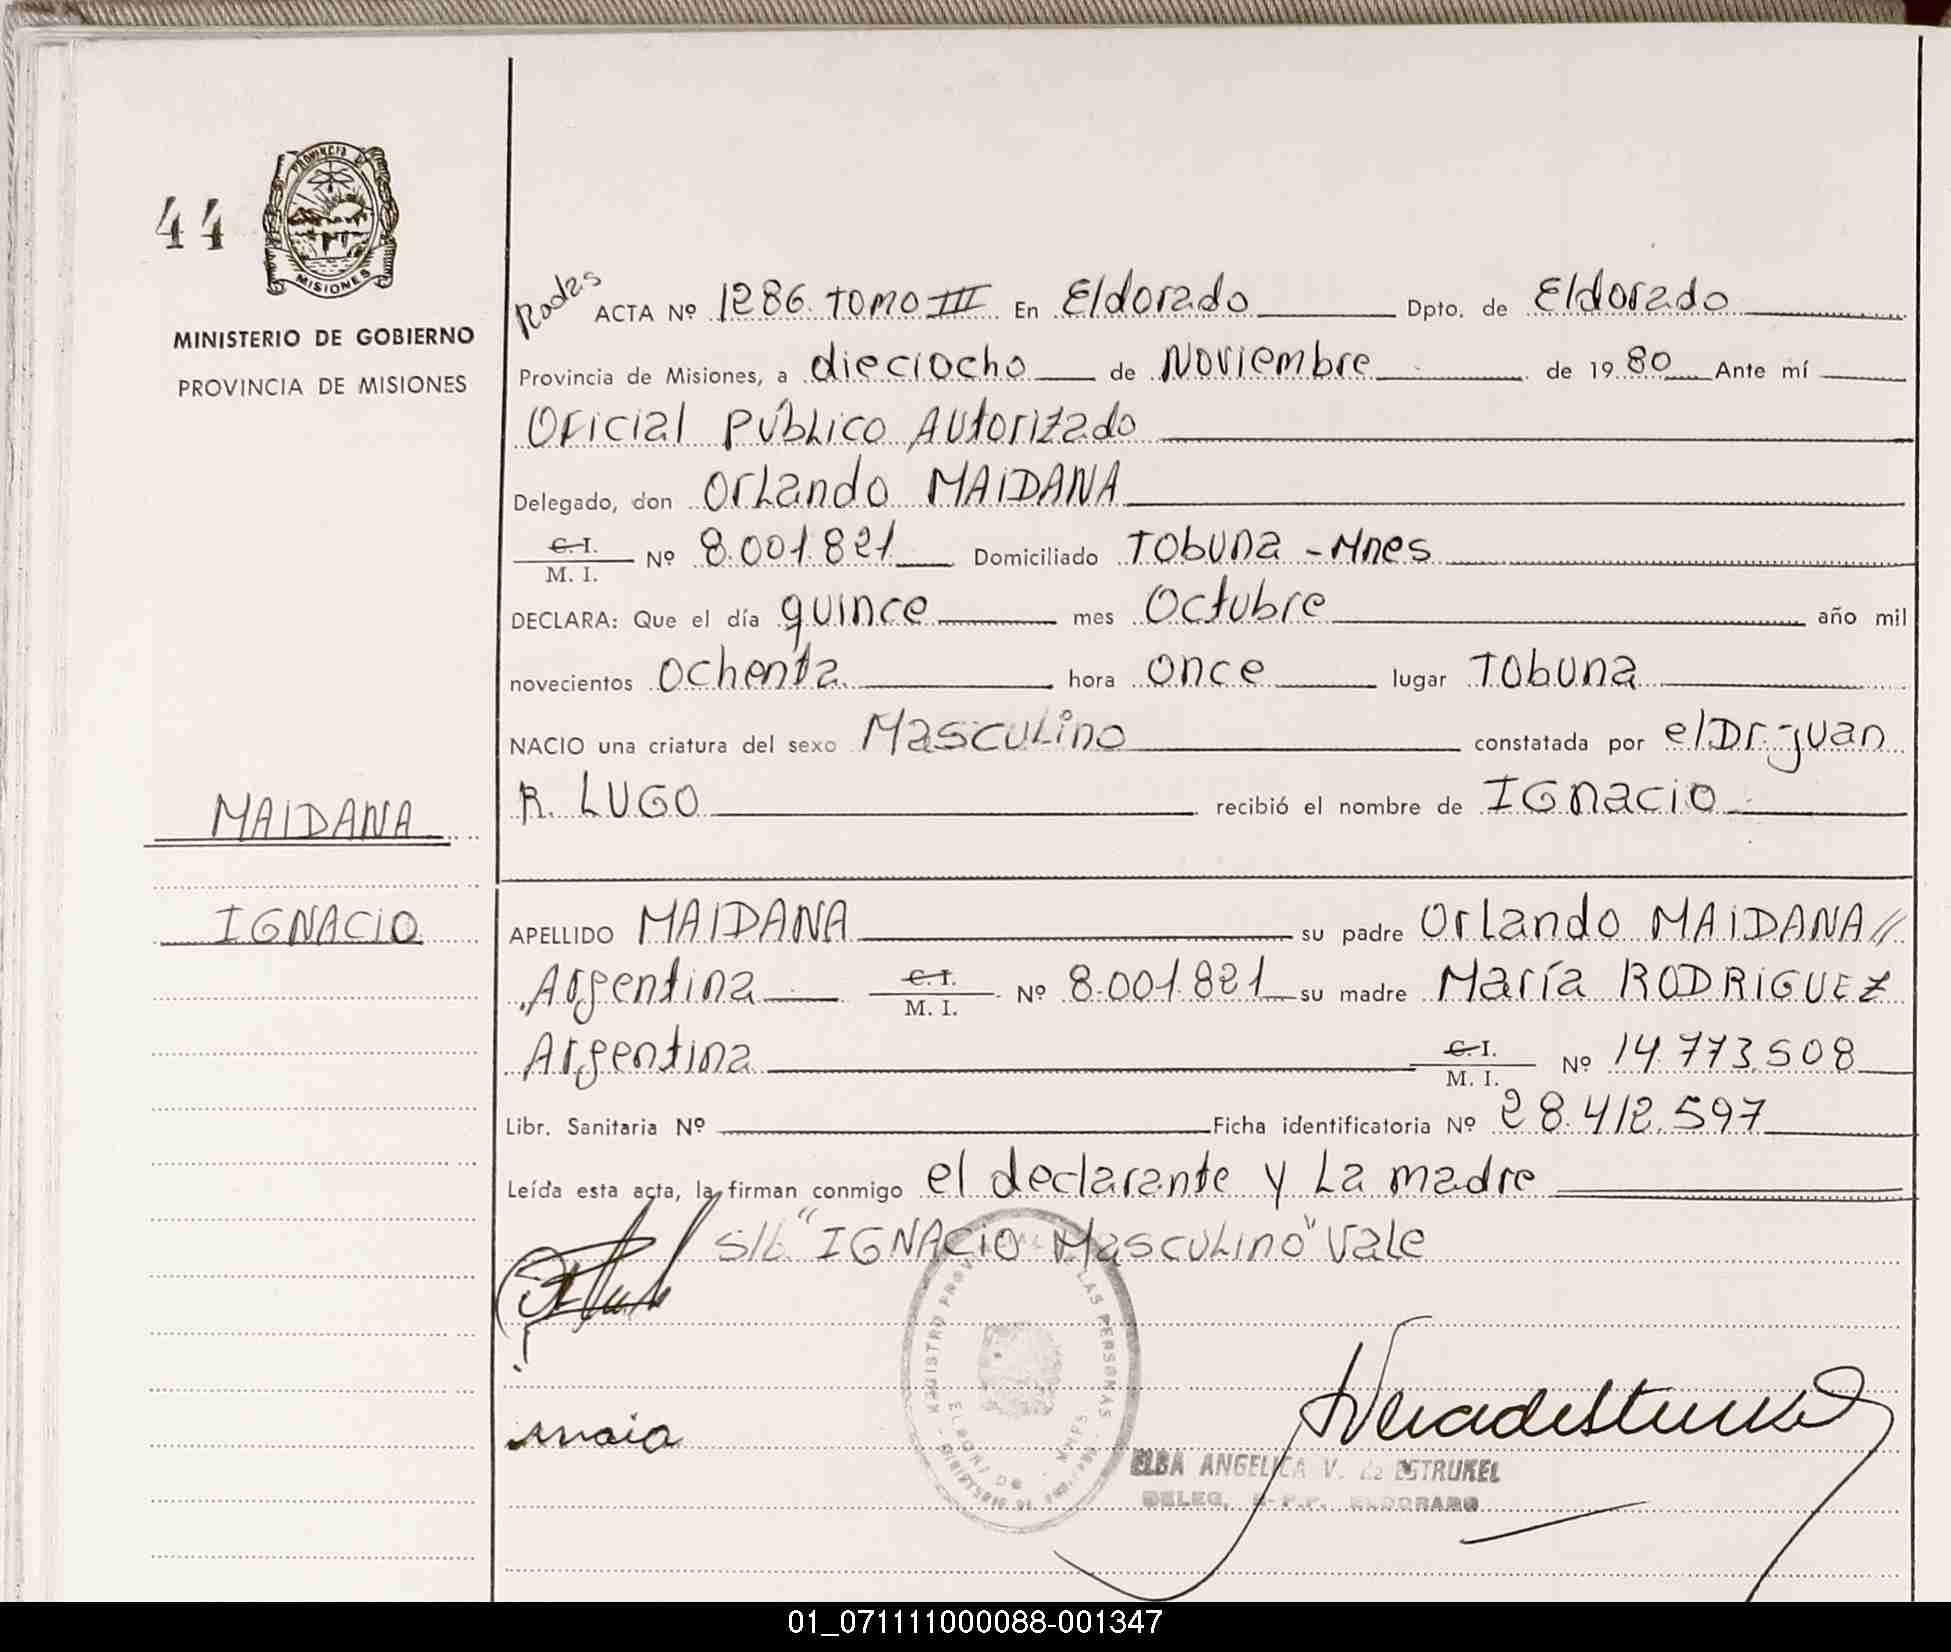 44
PROVINCIA DE
MISIONES
MINISTERIO DE GOBIERNO
PROVINCIA DE MISIONES
ACTA Nº 1286. TOMO III En Eldorado Dpto. de Eldorado
Provincia de Misiones, a dieciocho de Noviembre de 1980 Ante mí
Oficial Público Autorizado
Delegado, don Orlando MAIDANA
C. I.
M. I. Nº 8.001.821 Domiciliado Tobuna - Mnes
DECLARA: Que el día quince mes Octubre año mil
novecientos ochenta hora once lugar Tobuna
NACIO una criatura del sexo Masculino constatada por el Dr. Juan
R. LUGO recibió el nombre de IGnacio
MAIDANA
IGNACIO
APELLIDO MAIDANA su padre Orlando MAIDANA //
Argentina C. I. M. I. Nº 8.001.821 su madre María RODRIGUEZ
Argentina C. I. M. I. Nº 14.773.508
Libr. Sanitaria Nº Ficha identificatoria Nº 28.412.597
Leída esta acta, la firman conmigo el declarante y La madre
"IGNACIO Masculino" Vale
REGISTRO LAS PERSONAS
ELDORADO
ELBA ANGELICA V. de ESTRUKEL
DELEG. ELDORADO
01_071111000088-001347